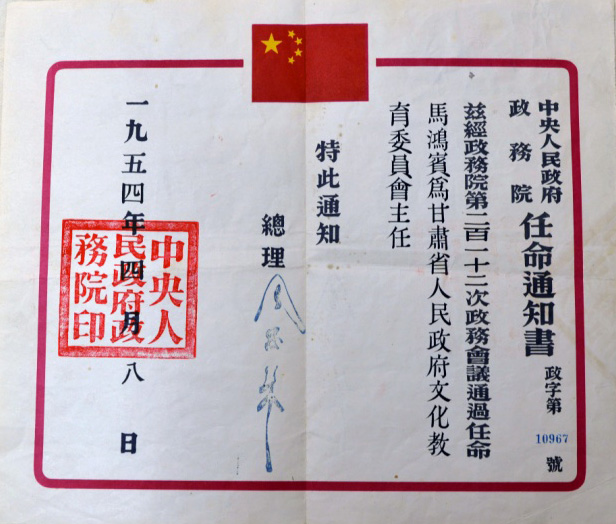 中央人民政府
政務院
任命通知書
政字第10967號
茲經政務院第二百一十二次政務會議通過任命
馬鴻賓爲甘肅省人民政府文化教
育委員會主任
特此通知
總理 周恩来
一九五四年四月八日
中央人
民政府政
務院印